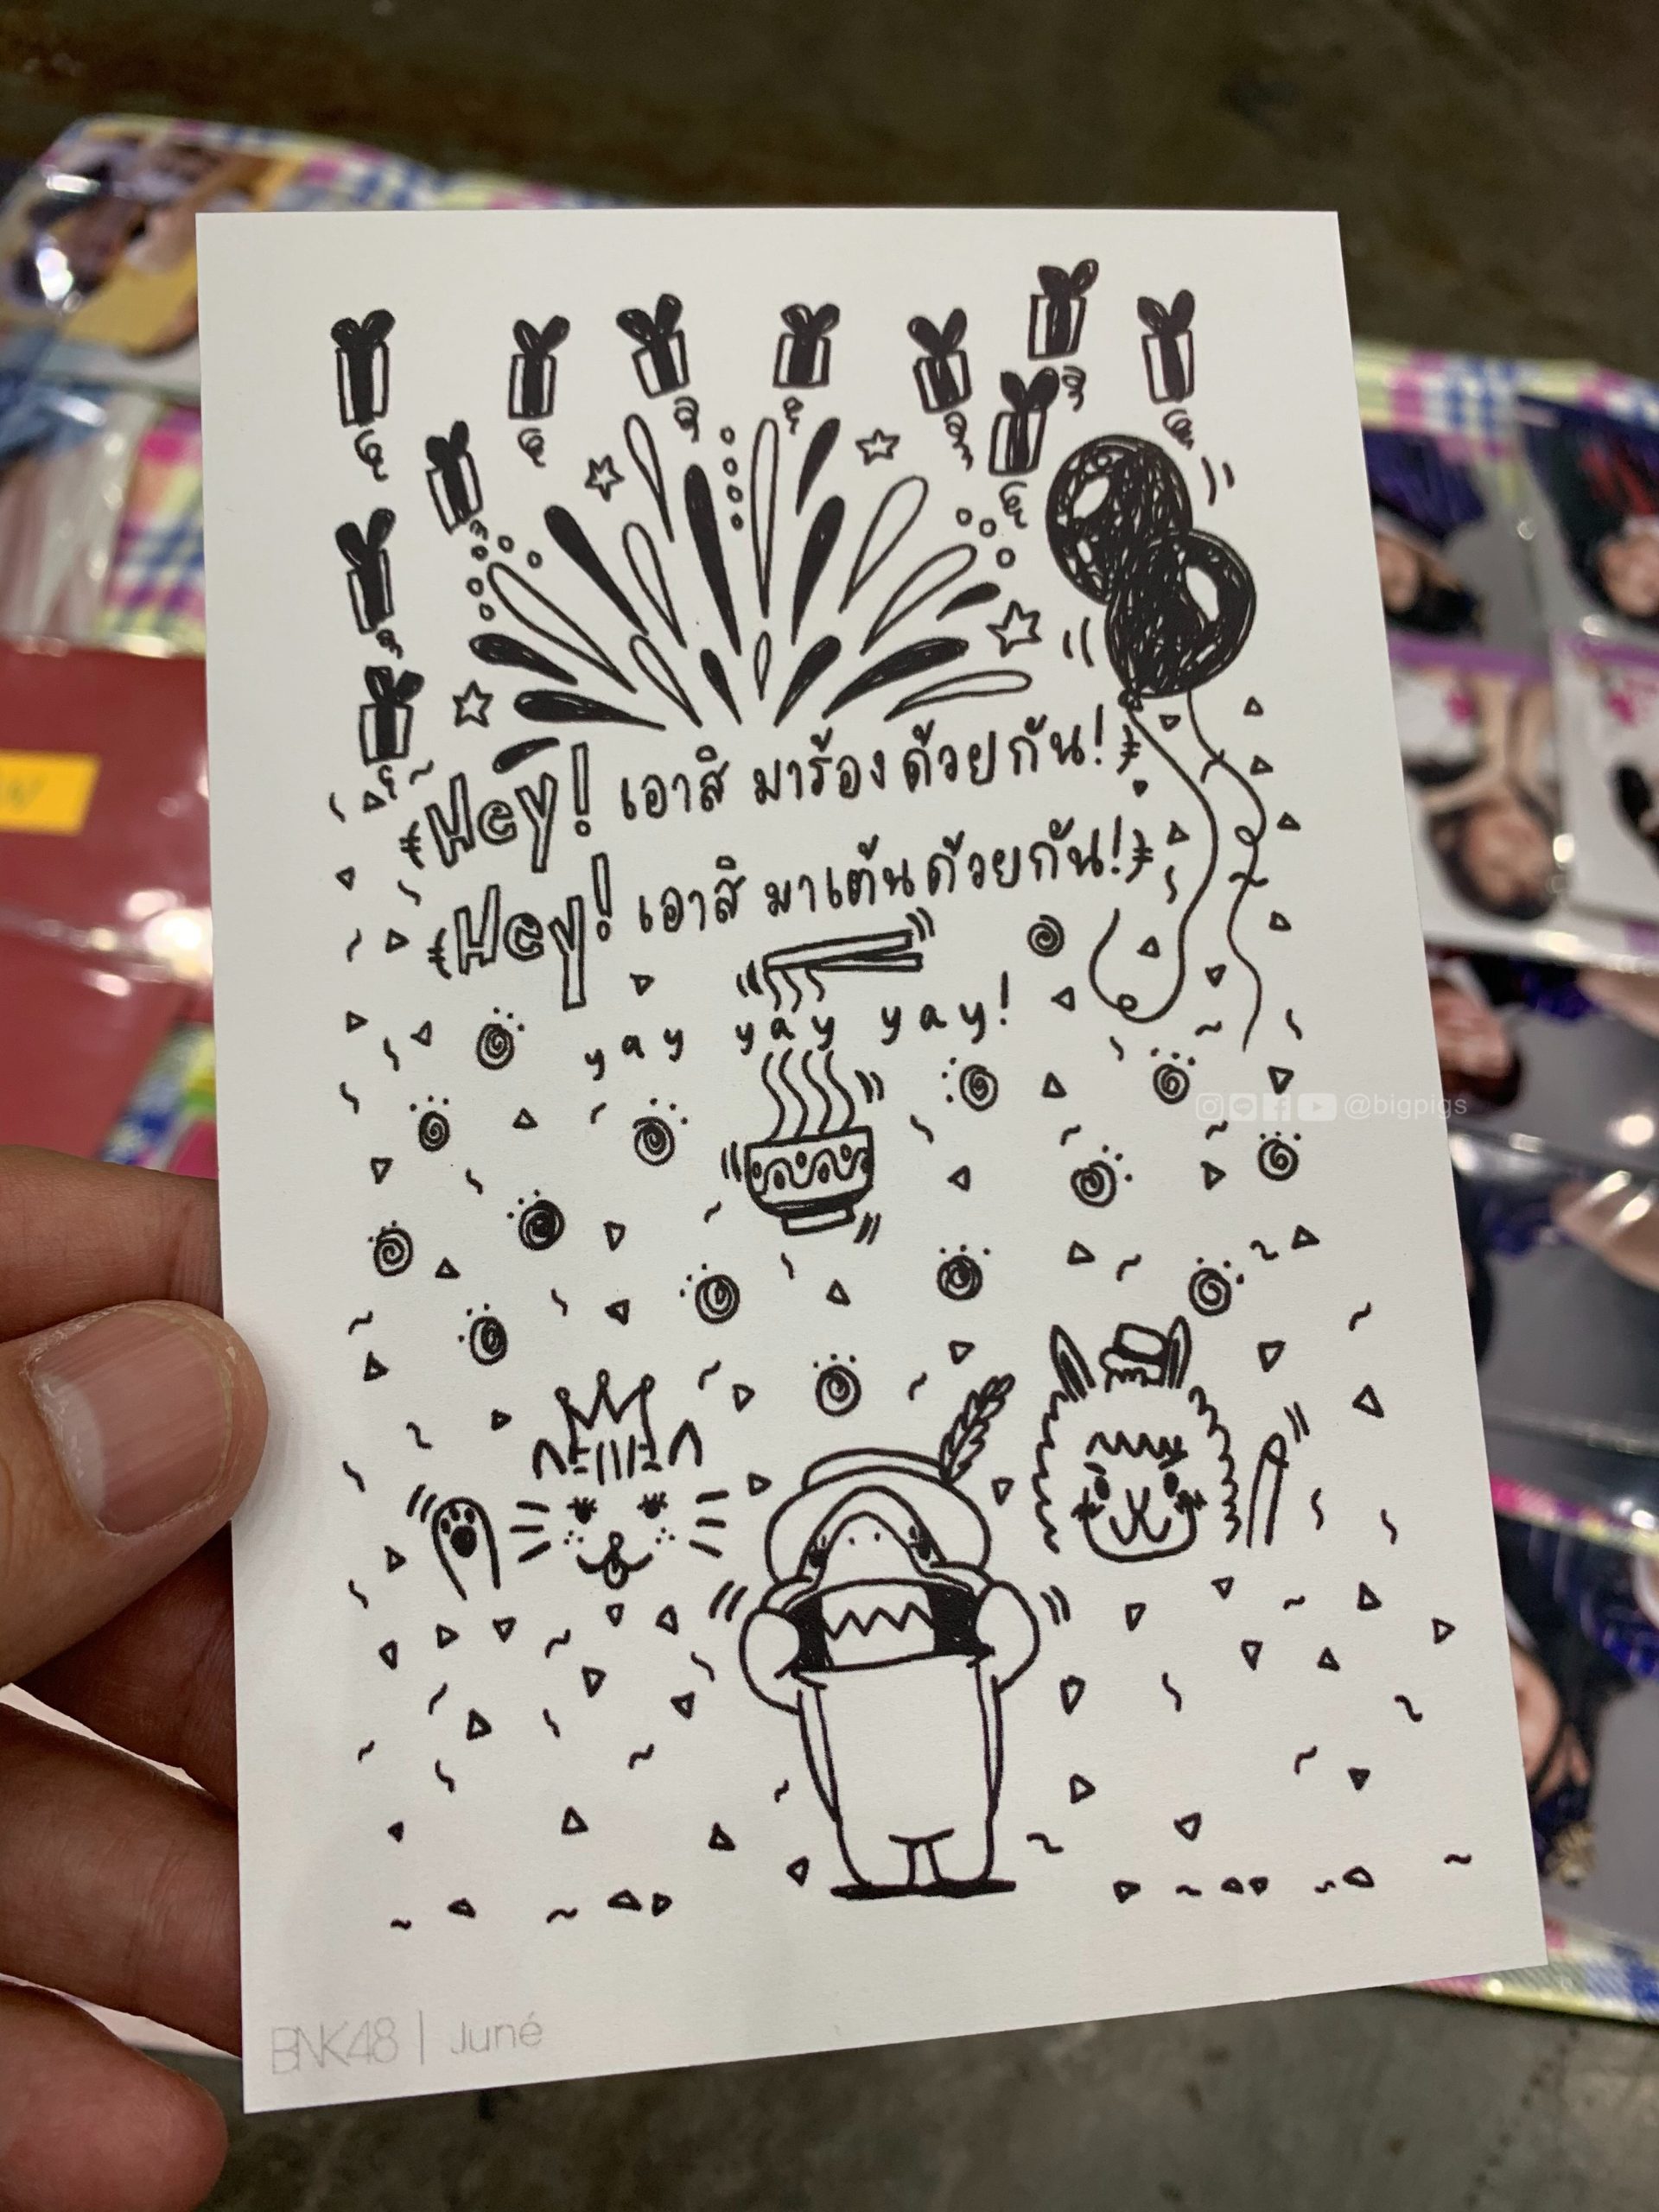 Hey! เอาสิ มาร้องด้วยกัน!
Hey! เอาสิ มาเต้นด้วยกัน!
yay yay yay!
@bigpigs
BNK48 | Juné